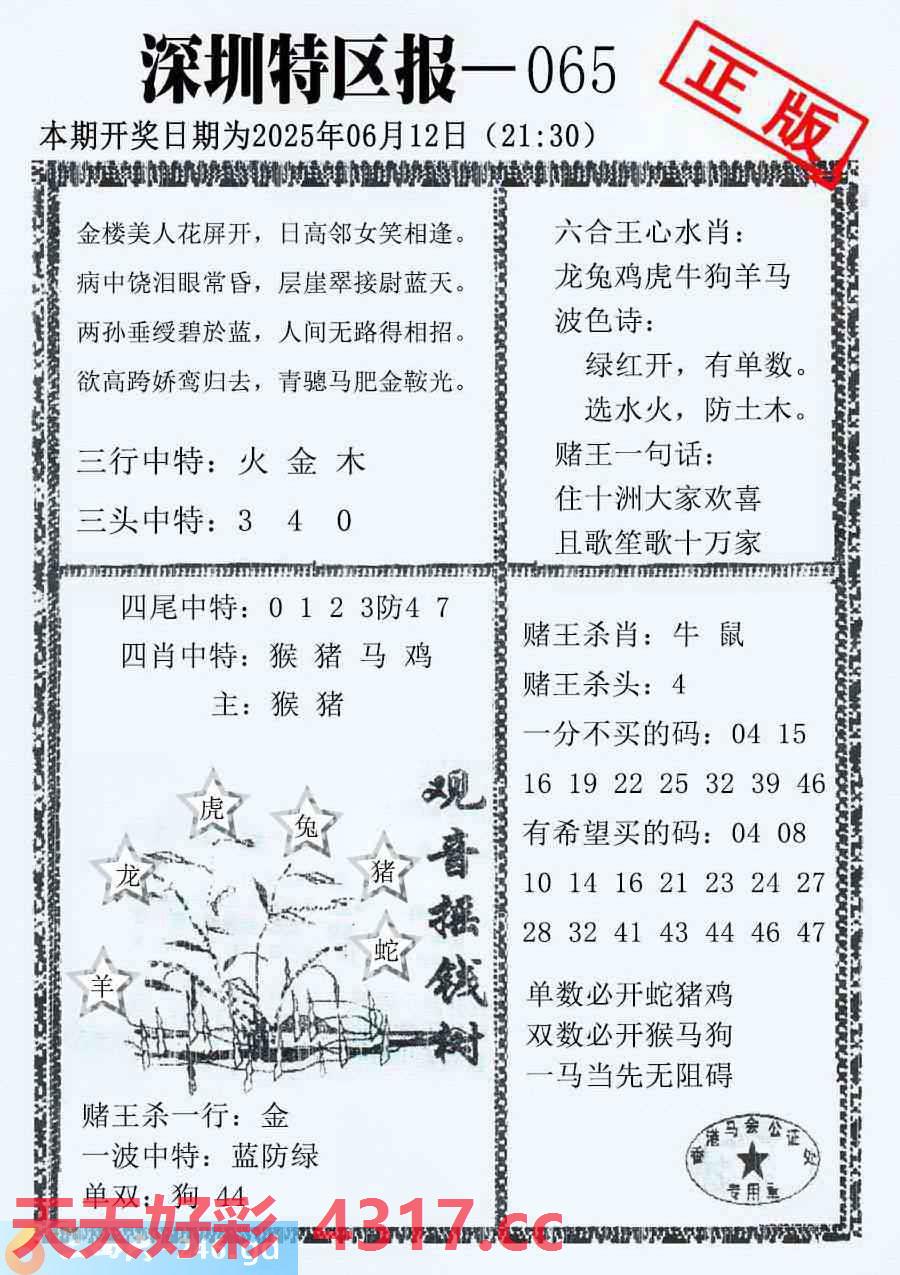 深圳特区报—065
正版
本期开奖日期为2025年06月12日（21:30）
金楼美人花屏开，日高邻女笑相逢。
病中饶泪眼常昏，层崖翠接尉蓝天。
两孙垂绶碧於蓝，人间无路得相招。
欲高跨娇鸾归去，青骢马肥金鞍光。
三行中特：火 金 木
三头中特：3 4 0
六合王心水肖：
龙兔鸡虎牛狗羊马
波色诗：
绿红开，有单数。
选水火，防土木。
赌王一句话：
住十洲大家欢喜
且歌笙歌十万家
四尾中特：0 1 2 3防4 7
四肖中特：猴 猪 马 鸡
主：猴 猪
观音摇钱树
虎
兔
龙
猪
蛇
羊
赌王杀一行：金
一波中特：蓝防绿
单双：狗 44
赌王杀肖：牛 鼠
赌王杀头：4
一分不买的码：04 15
16 19 22 25 32 39 46
有希望买的码：04 08
10 14 16 21 23 24 27
28 32 41 43 44 46 47
单数必开蛇猪鸡
双数必开猴马狗
一马当先无阻碍
香港马会公证处
专用章
天天好彩 4317.cc